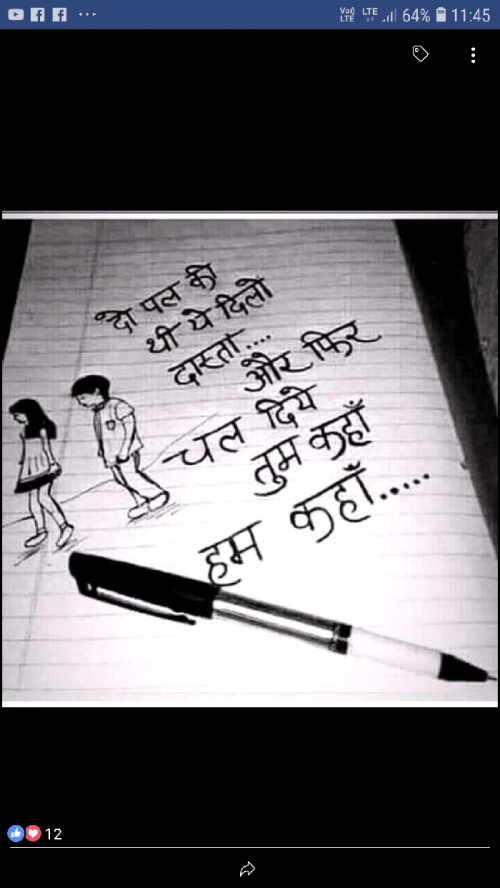 Vo)) LTE LTE 64% 11:45
दो पल की
थी ये दिलो
दास्ता....
और फिर
चल दिये
तुम कहाँ
हम कहाँ.....
12